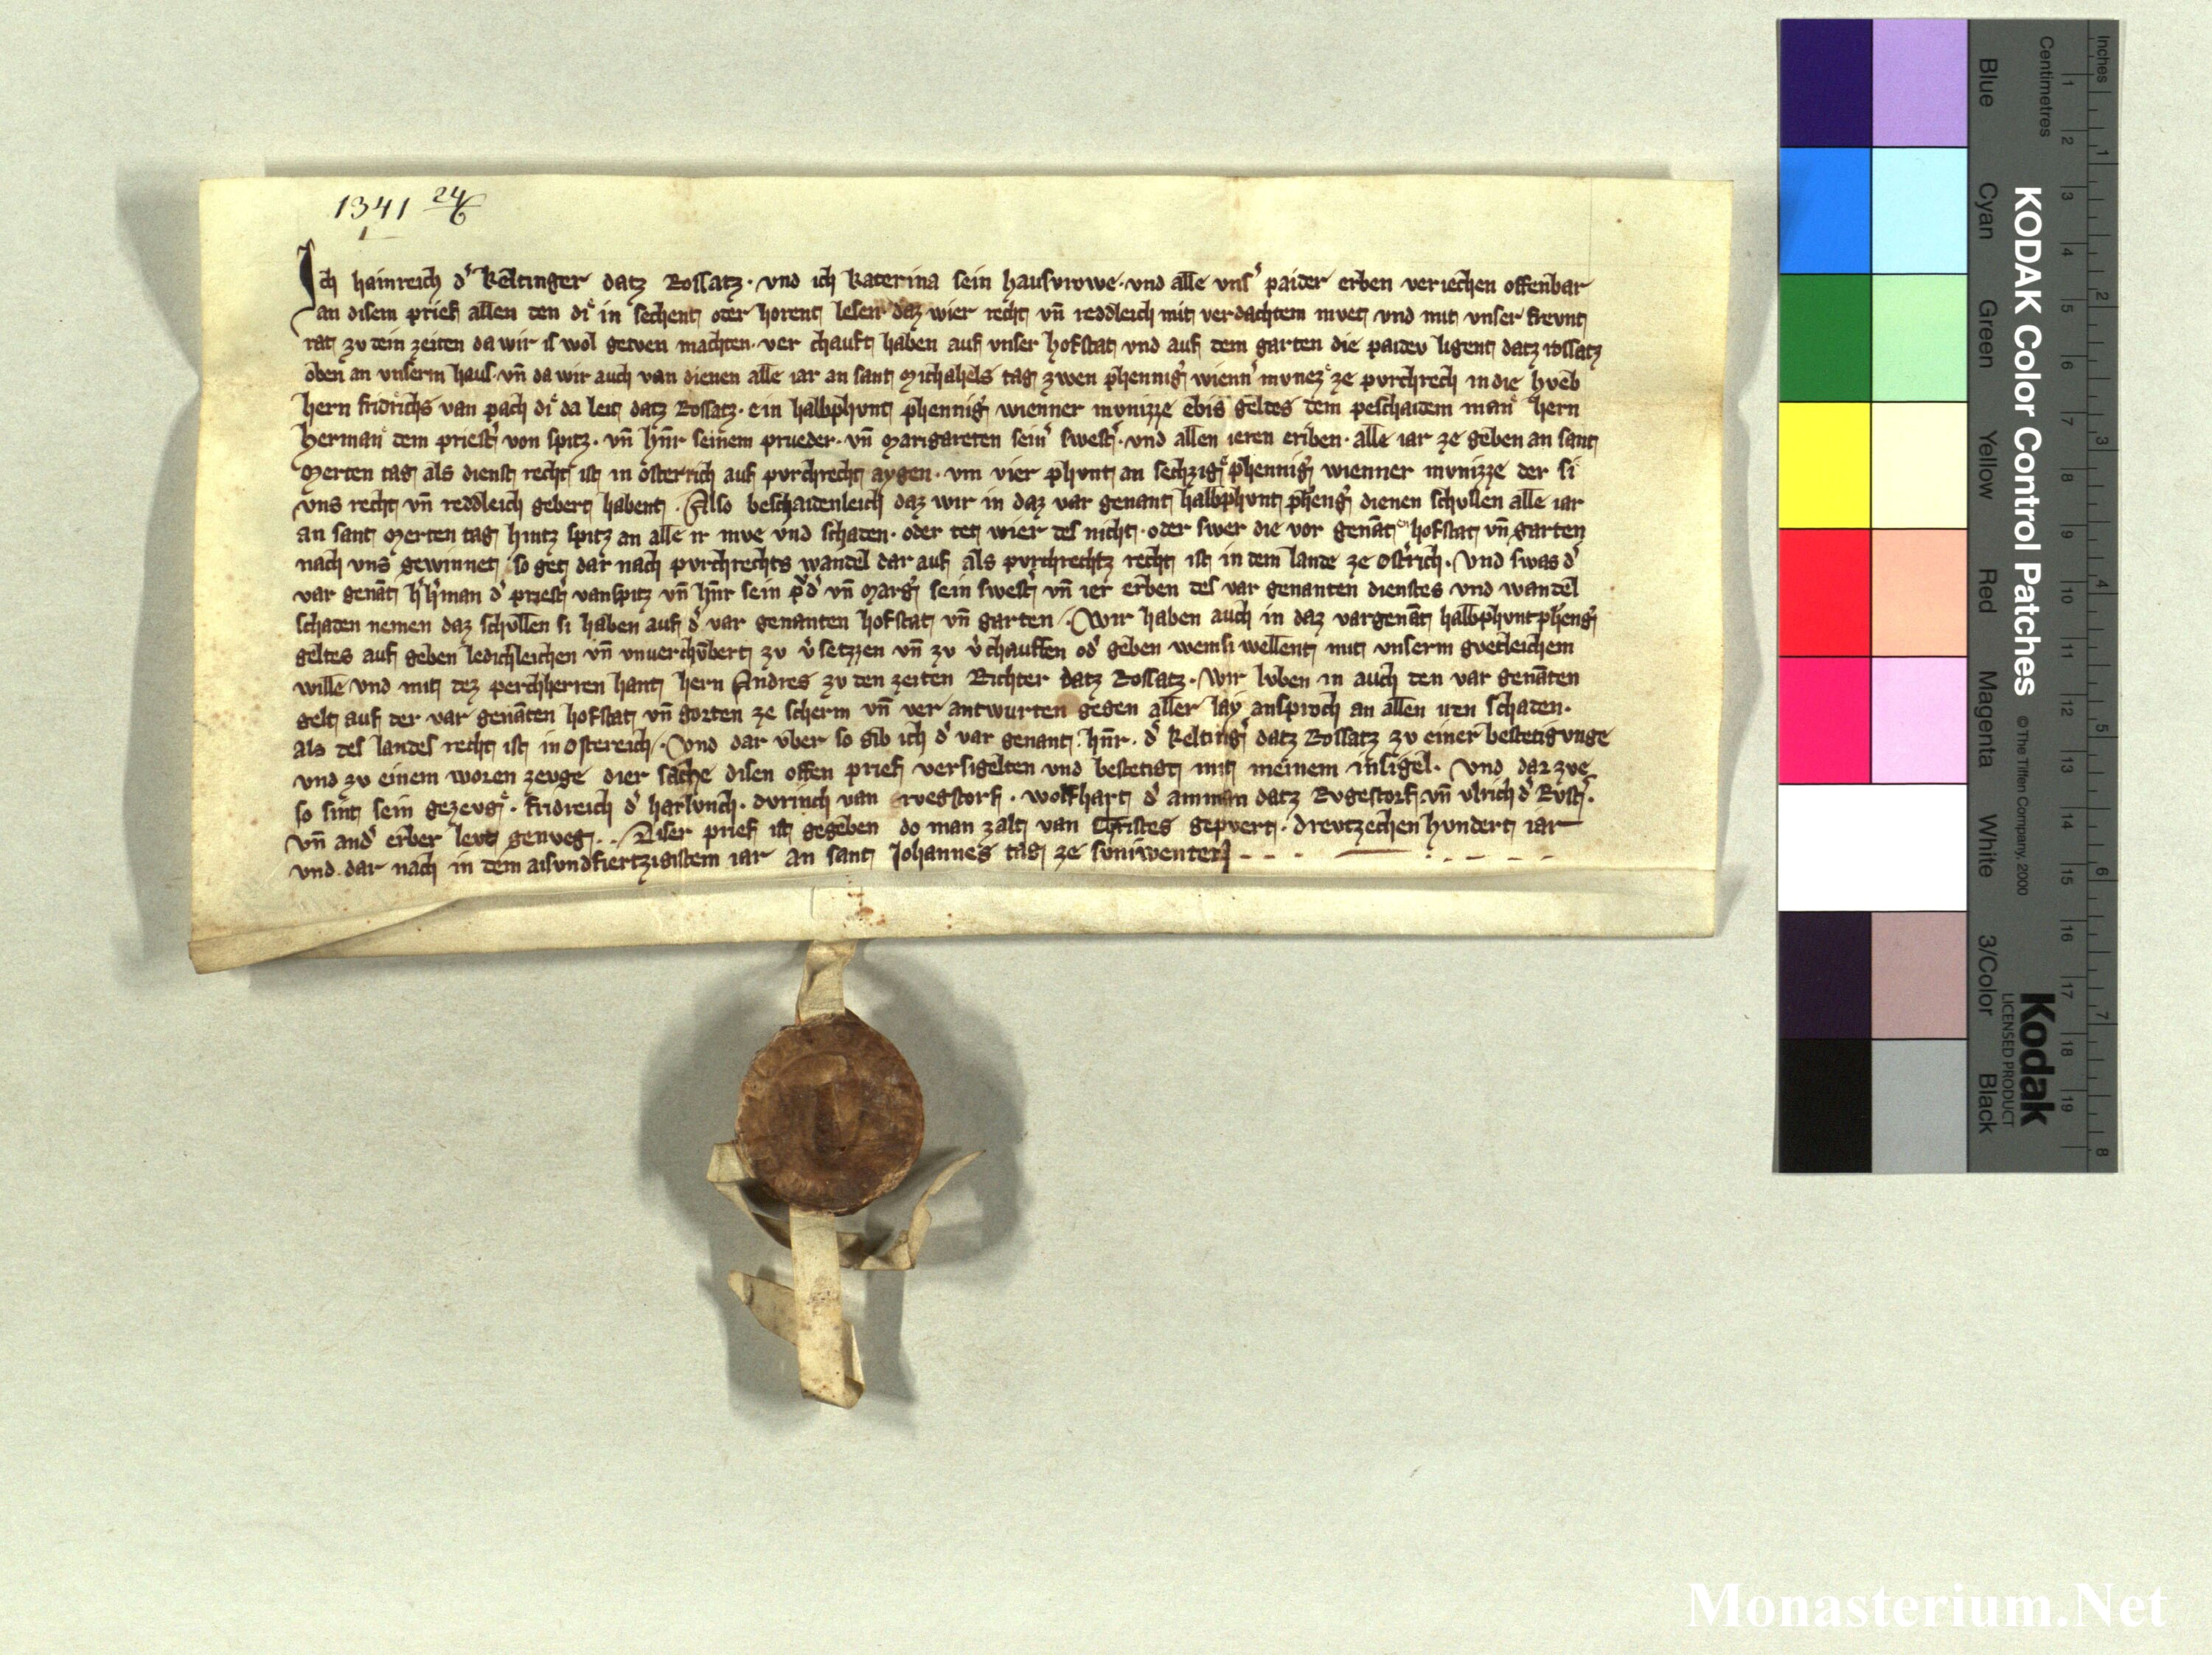 1341 24/6
Ich hainreich d' keltinger datz Rossatz · vnd ich katerina sein hausvrowe · vnd alle vns' paider erben veriechen offenbar
an disem prief allen den di in sechent oder horent lesen daz wier recht vn̄ reddleich mit verdachtem mvet vnd mit vnser frevnt
rat zv dein zeiten da wir is wol getven machten · ver chauft haben auf vnser hofstat vnd auf dem garten die paidev ligent datz rossatz
oben an vnserm haus · vn̄ da wir auch van dienen alle iar an sant Michahels tag zwen phennig' wienn' mvnez ze pvrchrech in die hveb
hern fridrichs van pach di da leit datz Rossatz · ein halbphvnt phennig' wienner mvnizze ebis geltes dem peschaidem man hern
herman dem priest' von spitz · vn̄ hn̄r seinem prueder · vn̄ Margareten sein' swest' · vnd allen ieren eriben · alle iar ze geben an sant
Merten tag als dienst recht ist in osterrich auf pvrchrecht aygen · vm vier phvnt an sechzig phennig' wienner mvnizze der si
vns recht vn̄ reddleich gebert habent · Also beschaidenleich daz wir in daz var genant halbphvnt phēng' dienen schvllen alle iar
an sant Merten tag hintz spitz an alle ir mve vnd schaden · oder tet wier des nicht · oder swer die vor genāt hofstat vn̄ garten
nach vns gewinnet so get dar nach pvrchrechts wandel dar auf als pvrchrechtz recht ist in dem lande ze Ost'rich · Vnd swas d'
var genāt h' h'man d' priest' van spitz vn̄ hn̄r sein p'd' vn̄ Marg' sein swest' vn̄ ier erben des var genanten dienstes vnd wandel
schaden nemen daz schvllen si haben auf d' var genanten hofstat vn̄ garten · Wir haben auch in daz vargenāt halbphvnt phēng'
geltes auf geben ledichleichen vn̄ vnuerchvbert zv v'setzzen vn̄ zv v'chauffen od' geben wem si wellent mit vnserm gvetleichem
wille vnd mit dez perchherren hant hern Andres zv den zeiten Richter datz Rossatz · Wir lvben in auch den var genāten
gelt auf der var genāten hofstat vn̄ gorten ze scherm vn̄ ver antwurten gegen aller lay ansproch an allen iren schaden ·
als des landes recht ist in Ostereich · Vnd dar vber so gib ich d' var genant hn̄r · d' kelting' datz Rossatz zv einer bestetigvnge
vnd zv einem woren zevge diser sache disen offen prief versigelten vnd bestetigt mit meinem insigel · Vnd dar zve
so sint sein gezevg · fridreich d' harlvnch · dvrinch van rvegstorf · wolfhart d' amman datz Rvgestorf · vn̄ vlrich d' Rvst' ·
vn̄ and' erber levt genveg · Diser prief ist gegeben do man zalt van Christes gepvert · drevtzechen hvndert iar
vnd dar nach in dem aisvndfiertzigistem iar an sant Johannes tag ze svniwenten
KODAK Color Control Patches © The Tiffen Company, 2000
Kodak
LICENSED PRODUCT
Blue Cyan Green Yellow Red Magenta White 3/Color Black
Inches 1 2 3 4 5 6 7 8
Centimetres 1 2 3 4 5 6 7 8 9 10 11 12 13 14 15 16 17 18 19
Monasterium.Net